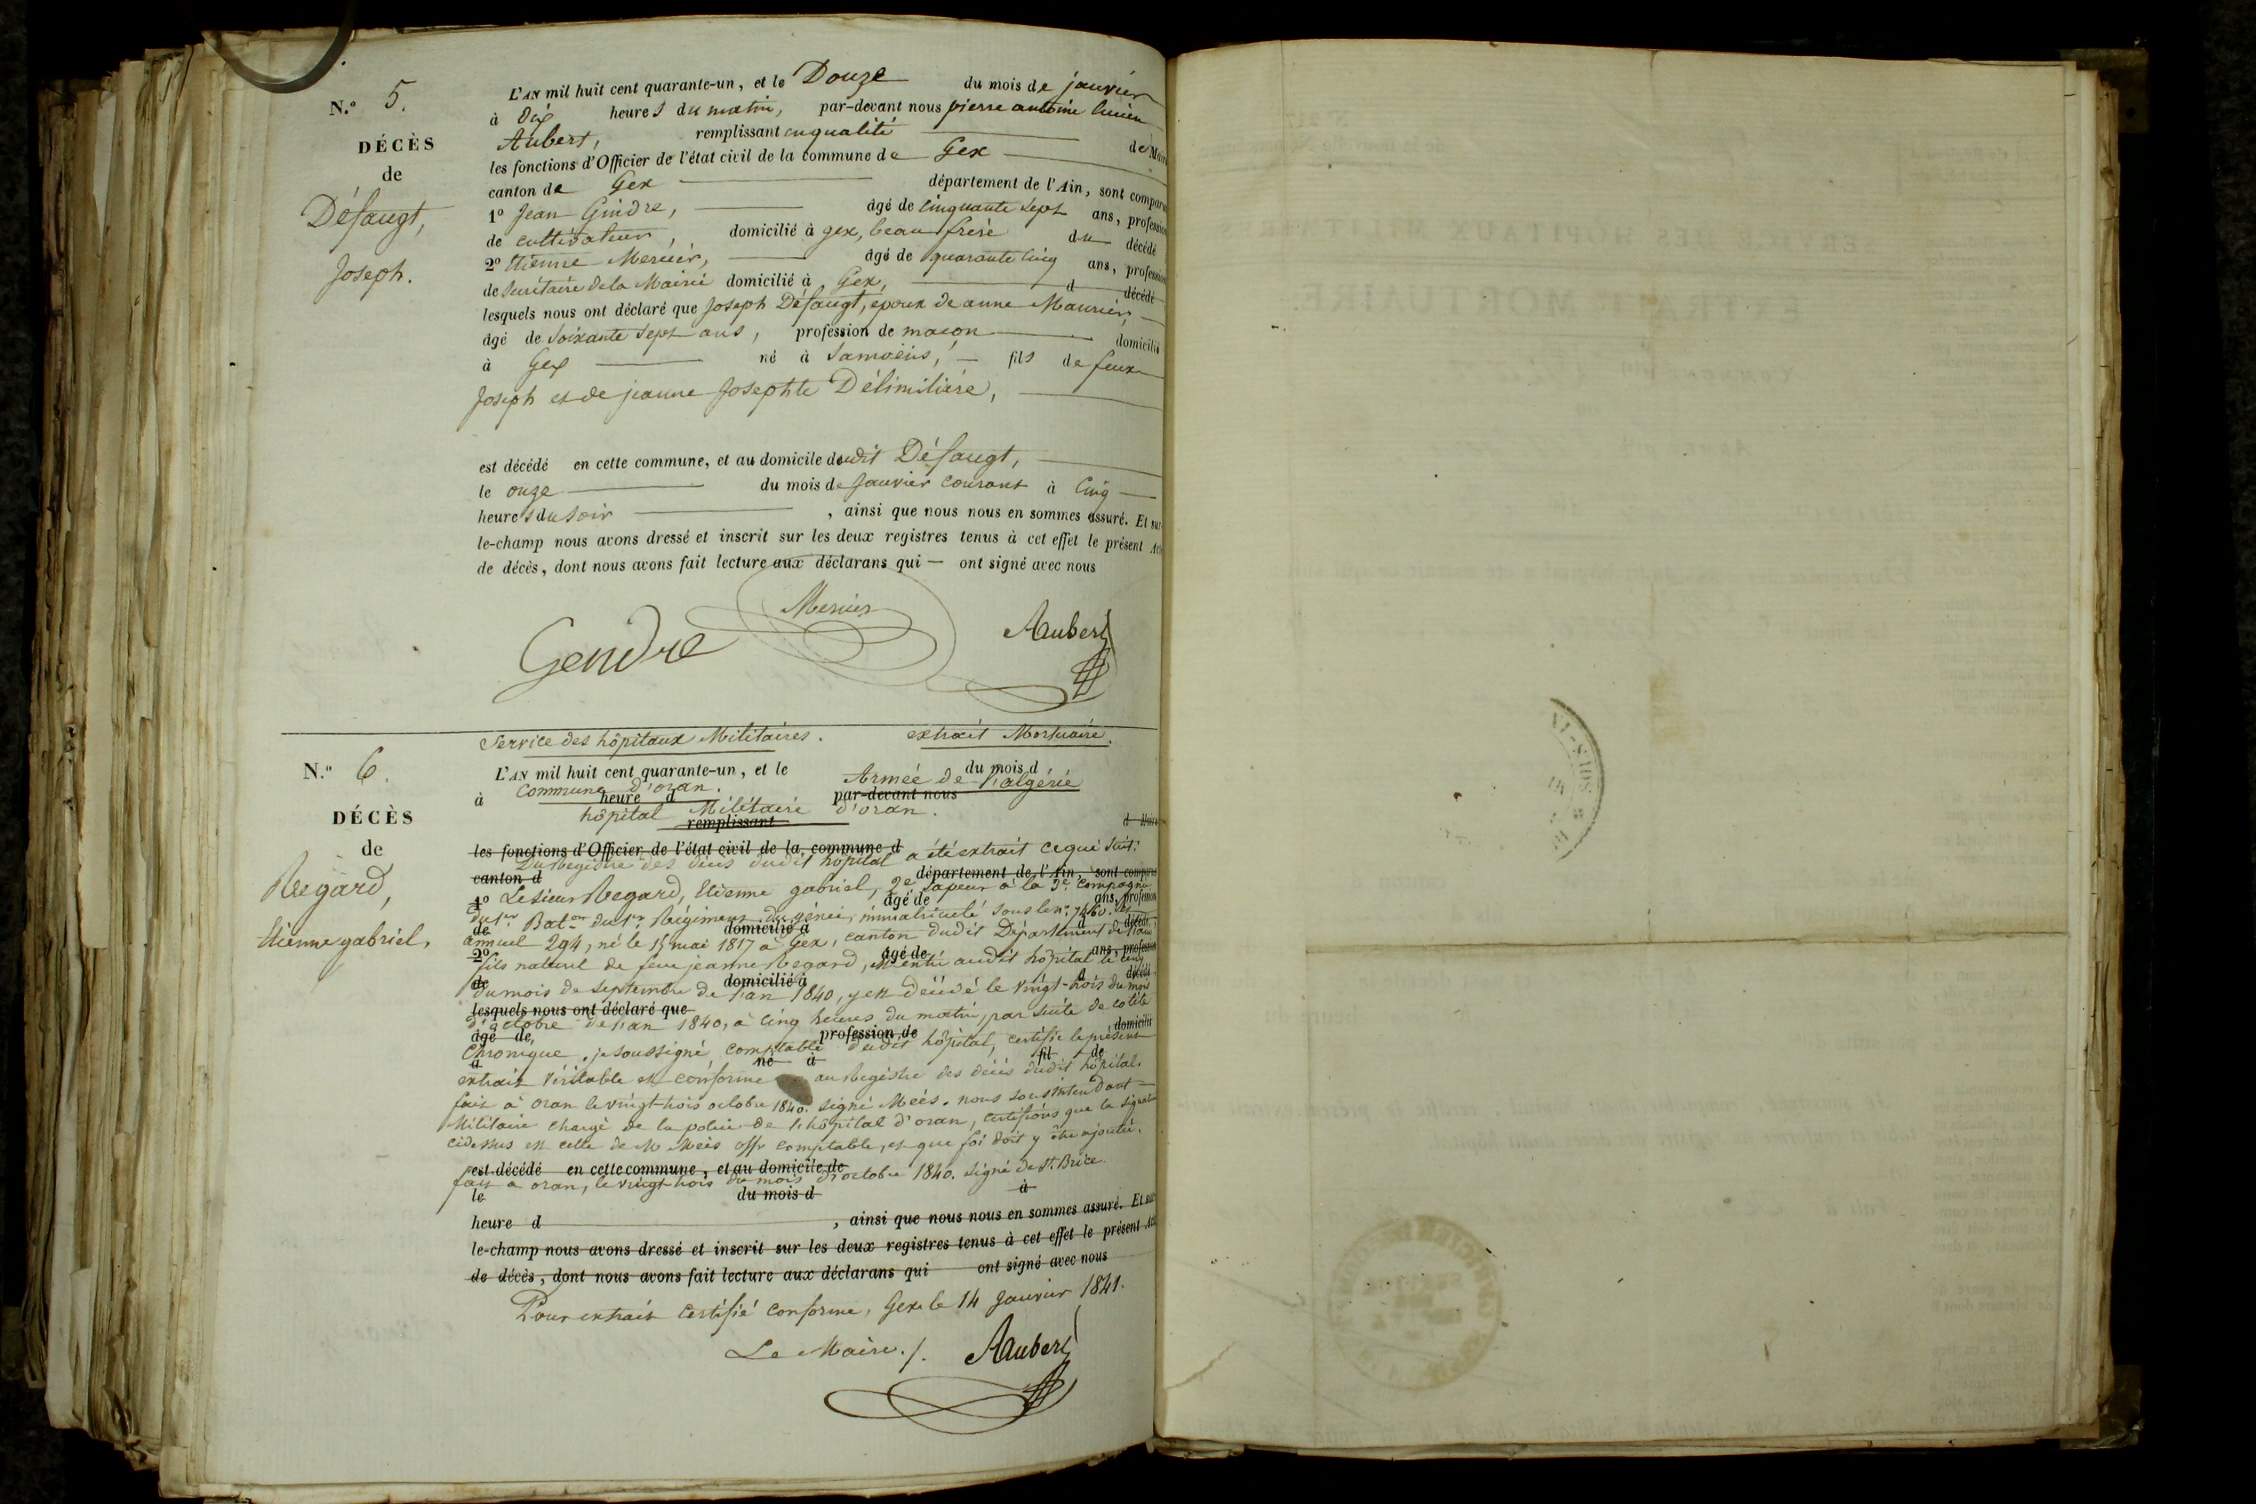 N.º 5.
DÉCÈS
de
Défaugt,
Joseph.
L'AN mil huit cent quarante-un, et le Douze du mois de janvier
à Dix heures du matin, par-devant nous pierre antoine lucien
Aubert, remplissant en qualité de Maire
les fonctions d'Officier de l'état civil de la commune de Gex
canton de Gex département de l'Ain, sont comparus
1º Jean Gindre, âgé de cinquante sept ans, profession
de cultivateur, domicilié à gex, beau frère du décédé
2º Etienne Mercier, âgé de quarante cinq ans, profession
de Secrétaire de la Mairie domicilié à Gex, d décédé
lesquels nous ont déclaré que Joseph Défaugt, époux de anne Maurier,
âgé de Soixante Sept ans, profession de maçon domicilié
à Gex né à Samoëns, fils de feux
Joseph et de jeanne Josephte Délimilière,
est décédé en cette commune, et au domicile dudit Défaugt,
le onze du mois de Janvier courant à Cinq
heures du Soir, ainsi que nous nous en sommes assuré. Et sur
le-champ nous avons dressé et inscrit sur les deux registres tenus à cet effet le présent Acte
de décès, dont nous avons fait lecture aux déclarans qui — ont signé avec nous
Mercier
Gendre
Aubert
N.º 6.
DÉCÈS
de
Regard,
Etienne gabriel.
Service des hôpitaux Militaires. extrait Mortuaire.
L'AN mil huit cent quarante-un, et le du mois d
Commune d'oran. Armée de l'algérie
à heure d par-devant nous
hôpital Militaire d'oran.
remplissant d Maire
les fonctions d'Officier de l'état civil de la commune d
Du Registre des décès dudit hôpital a été extrait ce qui suit:
canton d département de l'Ain, sont comparus
Le sieur Regard, Etienne gabriel, 2e Sapeur à la 3e Compagnie
1º âgé de ans, profession
du 1er Bat.on du 1er Régiment du génie, immatriculé sous le n.º 7460.
de domicilié à d décédé
annuel 294, né le 15 mai 1817 à Gex, canton dudit Département de l'ain
2º âgé de ans, profession
fils naturel de feue jeanne Regard, est entré audit hôpital le cinq
de domicilié à d décédé
du mois de Septembre de l'an 1840, y est décédé le vingt-trois du mois
lesquels nous ont déclaré que
d'octobre de l'an 1840, à cinq heures du matin, par suite de colite
âgé de profession de domicilié
Chronique. je soussigné comptable dudit hôpital, certifie le présent
à né à fil de
extrait véritable et conforme au Registre des décès dudit hôpital.
fait à oran le vingt-trois octobre 1840. signé Meès. nous sous intendant
Militaire chargé de la police de l'hôpital d'oran, certifions que la signature
ci dessus est celle de M Meès offr comptable, et que foi doit y être ajoutée.
est décédé en cette commune, et au domicile de
fait à oran, le vingt-trois du mois d'octobre 1840. signé de St. Brice.
le du mois d à
heure d, ainsi que nous nous en sommes assuré. Et sur
le-champ nous avons dressé et inscrit sur les deux registres tenus à cet effet le présent Acte
de décès, dont nous avons fait lecture aux déclarans qui ont signé avec nous
Pour extrait certifié conforme, Gex le 14 Janvier 1841.
Le Maire./. Aubert